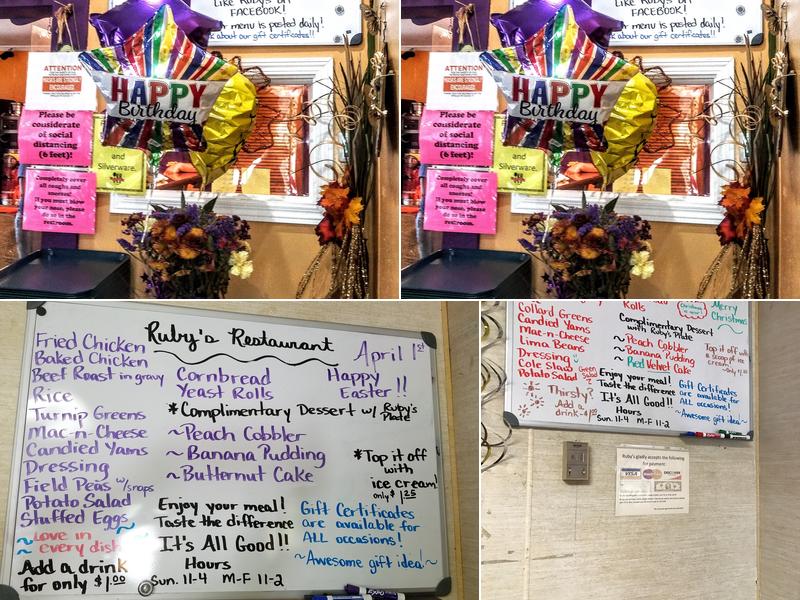 LIKE Ruby's on
FACEBOOK!
r menu is posted daily!
k about our gift certificates!!
ATTENTION
ENCOURAGED
HAPPY
Birthday
Please be
considerate
of social
distancing
(6 feet)!
and
Silverware.
Completely cover
all coughs and
sneezes!
If you must blow
your nose, please
do so in the
restroom.
LIKE Ruby's on
FACEBOOK!
r menu is posted daily!
k about our gift certificates!!
ATTENTION
ENCOURAGED
HAPPY
Birthday
Please be
considerate
of social
distancing
(6 feet)!
and
Silverware.
Completely cover
all coughs and
sneezes!
If you must blow
your nose, please
do so in the
restroom.
Ruby's Restaurant
April 1st
Fried Chicken
Baked Chicken
Beef Roast in gravy
Rice
Turnip Greens
Mac-n-Cheese
Candied Yams
Dressing
Field Peas w/snaps
Potato Salad
Stuffed Eggs
~Love in
every dish
Add a drink
for only $1.00
Cornbread
Yeast Rolls
Happy
Easter!!
*Complimentary Dessert w/ Ruby's
Plate
~Peach Cobbler
~Banana Pudding
~Butternut Cake
*Top it off
with
ice cream!
only $1.25
Enjoy your meal!
Taste the difference
It's All Good!!
Hours
Sun. 11-4 M-F 11-2
Gift Certificates
are available for
ALL occasions!
~Awesome gift idea!~
Collard Greens
Candied Yams
Mac-n-Cheese
Lima Beans
Dressing
Cole Slaw
Potato Salad
Green
Salad
Thirsty?
Add a
drink~$1.00
Rolls
Merry
Christmas
Complimentary Dessert
with Ruby's Plate
~Peach Cobbler
~Banana Pudding
~Red Velvet Cake
Top it off
with
a scoop of ice
cream
Enjoy your meal!
Taste the difference
It's All Good!!
Hours
Sun. 11-4 M-F 11-2
Gift Certificates
are available for
ALL occasions!
~Awesome gift idea~
Ruby's gladly accepts the following
for payment:
VISA
DISCOVER